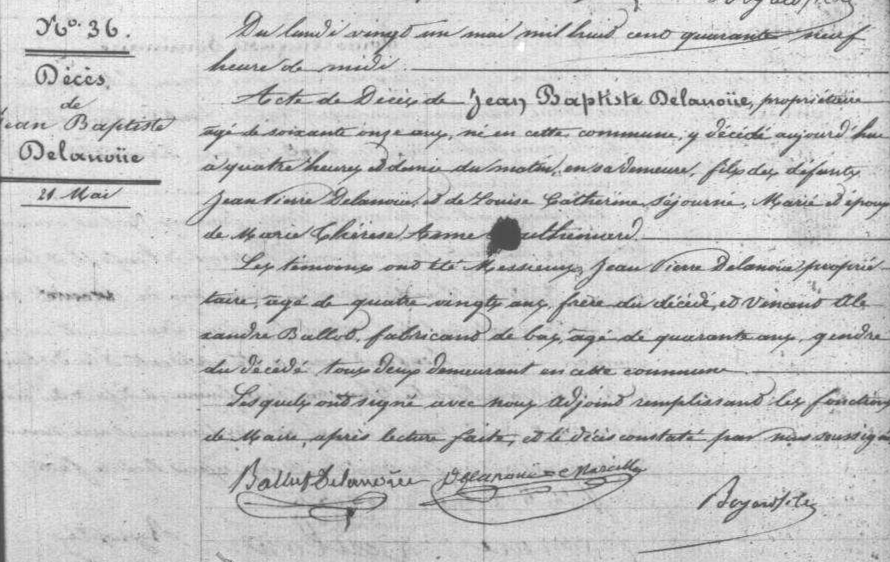 N.º 36.
Décès
de
Jean Baptiste
Delanoüe
21 Mai
Du lundi vingt un mai mil huit cent quarante neuf
heure de midi
Acte de Décès de Jean Baptiste Delanoüe, propriétaire
agé de soixante onze ans, né en cette commune, y décédé aujourd'hui
à quatre heures et demie du matin, en sa demeure, fils des défunts
Jean Pierre Delanoüe, et de Louise Catherine Séjourne, Marié et époux
de Marie Thérese
Les témoins ont été Messieurs, Jean Pierre Delanoüe proprié
taire, agé de quatre vingts ans, frère du décédé, et Vincent Ale
xandre Ballot, fabricant de bas, agé de quarante ans, gendre
du décédé tous deux demeurant en cette commune
Lesquels ont signé avec nous adjoint remplissant les fonctions
de Maire, après lecture faite, et le décès constaté par nous soussigné
Ballot Delanoüe Delanoüe